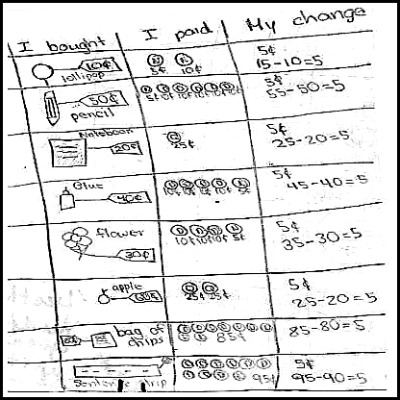 I bought I paid My change
10¢ 5¢
lollipop 5¢ 10¢ 15-10=5
50¢ 5¢ 10¢ 10¢ 10¢ 10¢ 10¢ 5¢
pencil 55-50=5
Notebook 5¢
20¢ 25¢ 25-20=5
Glue 5¢
40¢ 10¢ 10¢ 10¢ 10¢ 5¢ 45-40=5
flower 5¢
30¢ 10¢ 10¢ 10¢ 5¢ 35-30=5
apple 5¢
25¢ 25¢ 25-20=5
bag of 85-80=5
chips 85¢
5¢
sentence strip 95¢ 95-90=5